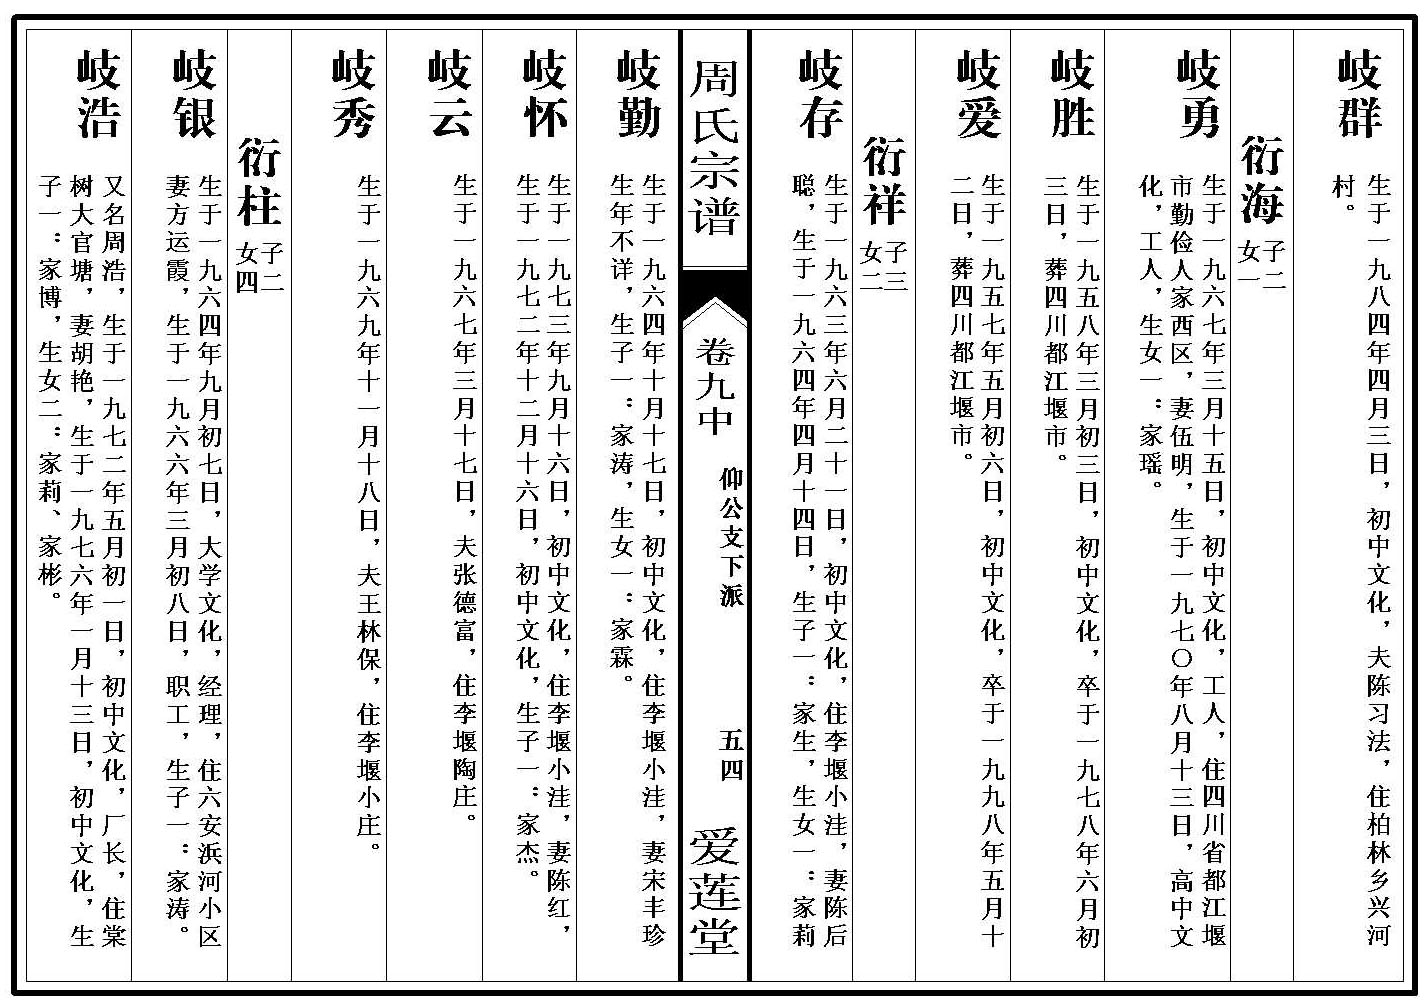 岐群
生于一九八四年四月三日，初中文化，夫陈习法，住柏林乡兴河
村。
衍海
子二
女一
岐勇
生于一九六七年三月十五日，初中文化，工人，住四川省都江堰
市勤俭人家西区，妻伍明，生于一九七〇年八月十三日，高中文
化，工人，生女一：家瑶。
岐胜
生于一九五八年三月初三日，初中文化，卒于一九七八年六月初
三日，葬四川都江堰市。
岐爱
生于一九五七年五月初六日，初中文化，卒于一九九八年五月十
二日，葬四川都江堰市。
衍祥
子三
女二
岐存
生于一九六三年六月二十一日，初中文化，住李堰小洼，妻陈后
聪，生于一九六四年四月十四日，生子一：家生，生女一：家莉
周氏宗谱
卷九中
仰公支下派
五四
爱莲堂
岐勤
生于一九六四年十月十七日，初中文化，住李堰小洼，妻宋丰珍
生年不详，生子一：家涛，生女一：家霖。
岐怀
生于一九七三年九月十六日，初中文化，住李堰小洼，妻陈红，
生于一九七二年十二月十六日，初中文化，生子一：家杰。
岐云
生于一九六七年三月十七日，夫张德富，住李堰陶庄。
岐秀
生于一九六九年十一月十八日，夫王林保，住李堰小庄。
衍柱
子二
女四
岐银
生于一九六四年九月初七日，大学文化，经理，住六安浜河小区
妻方运霞，生于一九六六年三月初八日，职工，生子一：家涛。
岐浩
又名周浩，生于一九七二年五月初一日，初中文化，厂长，住棠
树大官塘，妻胡艳，生于一九七六年一月十三日，初中文化，生
子一：家博，生女二：家莉、家彬。